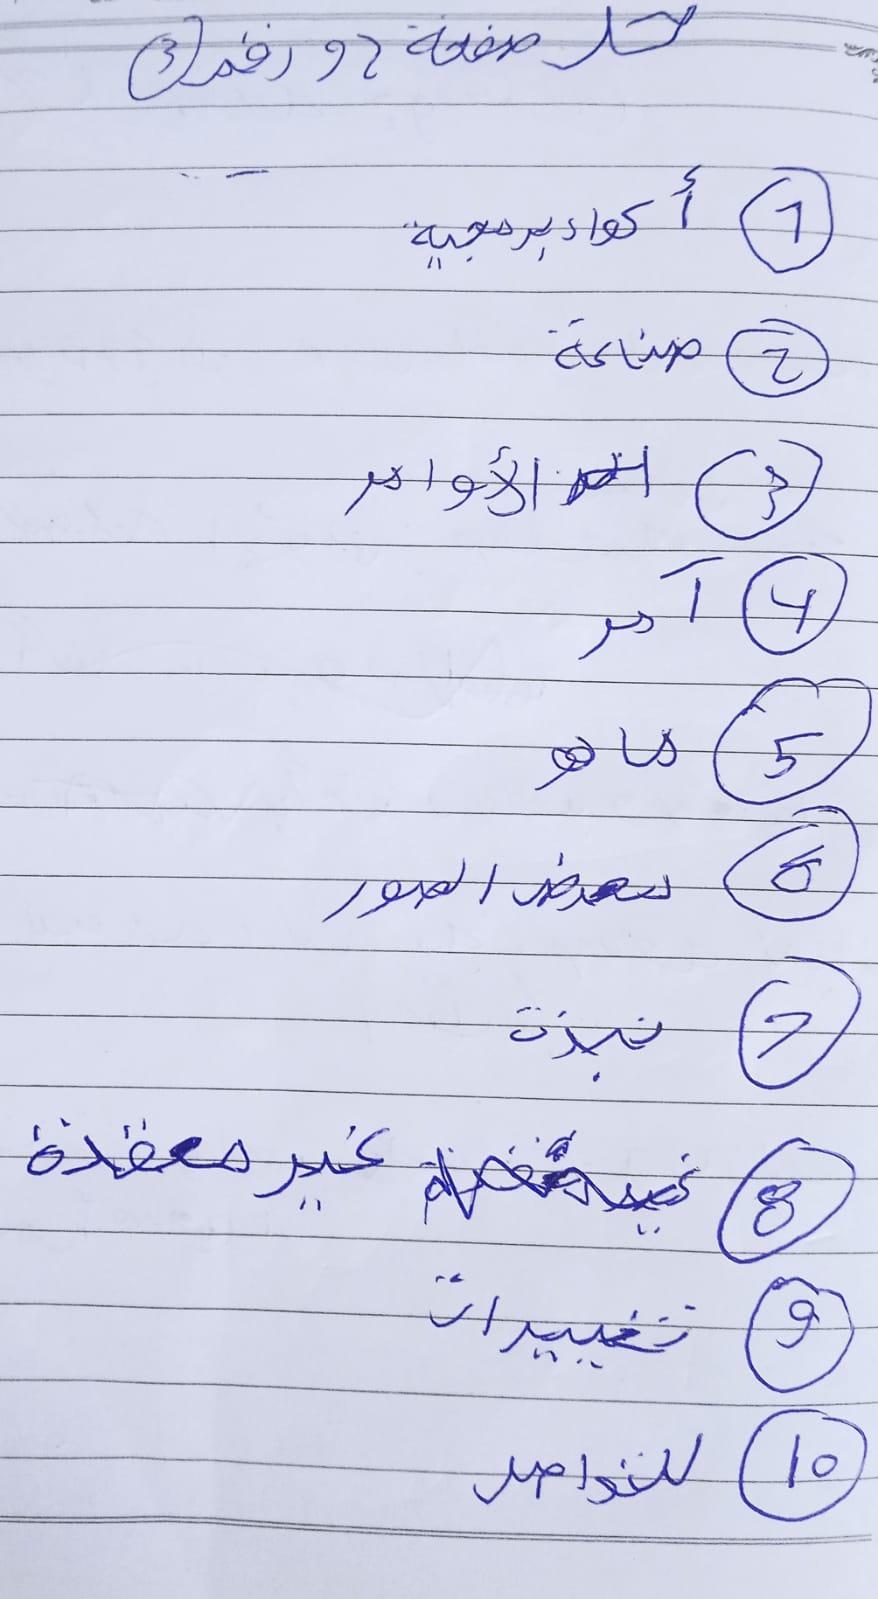 حل صفحة 29 رقم (3)
1 أكواد برمجية
2 صناعة
3 الأوامر
4 آمر
5 ما هو
6 معرض الصور
7 نبذة
8 غير معقدة
9 تغييرات
10 للتواصل